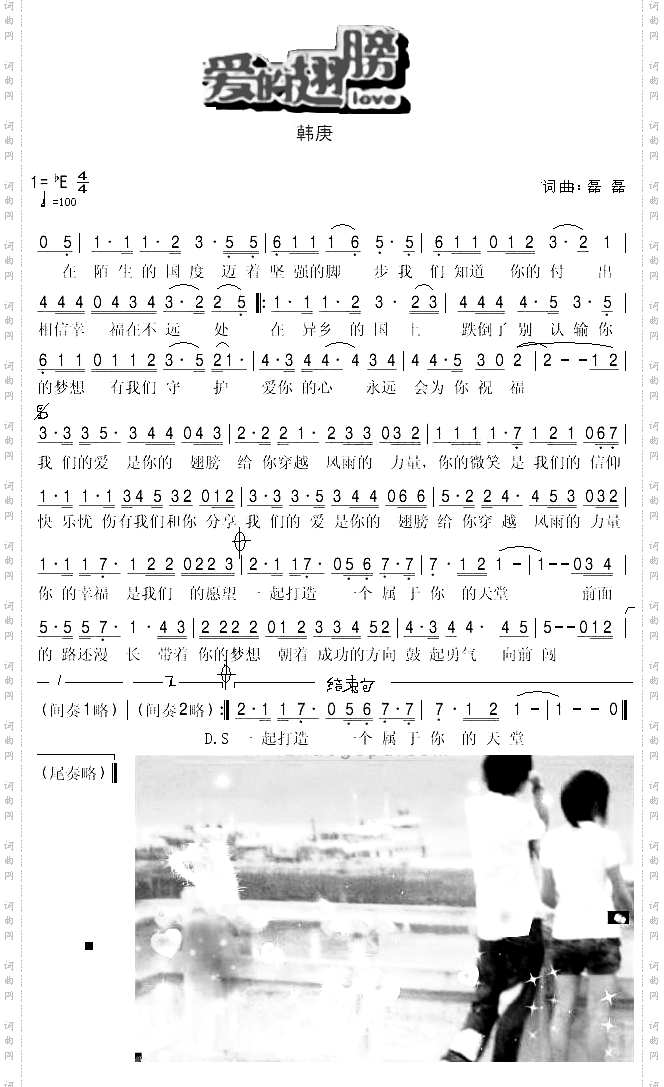 爱的翅膀
love
韩庚
1=♭E 4/4
=100
词曲：磊 磊
0 5 | 1· 1 1· 2 3 · 5 5 | 6 1 1 1 6 5 · 5 | 6 1 1 0 1 2 3 · 2 1 |
在 陌生的国度 迈着坚强的脚 步我们知道 你的付 出
4 4 4 0 4 3 4 3 · 2 2 5 ‖: 1 · 1 1 · 2 3 · 2 3 | 4 4 4 4 · 5 3 · 5 |
相信幸 福在不远 处 在 异乡 的国 土 跌倒了别 认输你
6 1 1 0 1 1 2 3 · 5 2 1 · | 4 · 3 4 4 · 4 3 4 | 4 4 · 5 3 0 2 | 2 - - 1 2
的梦想 有我们守 护 爱你的心 永远 会为你祝 福
3 · 3 3 5 · 3 4 4 0 4 3 | 2 · 2 2 1 · 2 3 3 0 3 2 | 1 1 1 1 · 7 1 2 1 0 6 7 |
我 们的爱 是你的 翅膀 给 你穿越 风雨的 力量，你的微笑是我们的信仰
1 · 1 1 · 1 3 4 5 3 2 0 1 2 | 3 · 3 3 · 5 3 4 4 0 6 6 | 5 · 2 2 4 · 4 5 3 0 3 2
快 乐忧 伤有我们和你 分享 我 们的 爱 是你的 翅膀 给 你穿 越 风雨的 力量
1 · 1 1 7 · 1 2 2 0 2 2 3 | 2 · 1 1 7 · 0 5 6 7 · 7 | 7 · 1 2 1 - | 1 - - 0 3 4 |
你 的幸福 是我们 的愿望 一起打造 一个 属 于 你 的天堂 前面
5 · 5 5 7 · 1 · 4 3 | 2 2 2 2 0 1 2 3 3 4 5 2 | 4 · 3 4 4 · 4 5 | 5 - - 0 1 2 |
的 路还漫 长 带着 你的梦想 朝着 成功的方向 鼓 起勇气 向前 闯
1 2 结束句
(间奏1略) | (间奏2略) :‖ 2 · 1 1 7 · 0 5 6 7 · 7 | 7 · 1 2 1 - | 1 - - 0 ‖
D.S 一起打造 一个 属 于 你 的 天 堂
(尾奏略)
词曲网